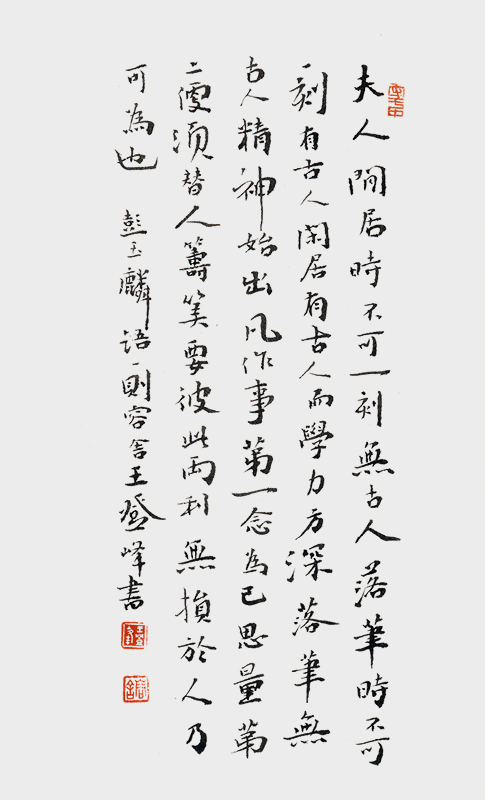 夫人閒居時不可一刻無古人落筆時不可
一刻有古人閑居有古人而學力方深落筆無
古人精神始出凡作事第一念為己思量第
二便須替人籌算要彼此兩利無損於人乃
可為也 彭玉麟語一則容舍王登峰書